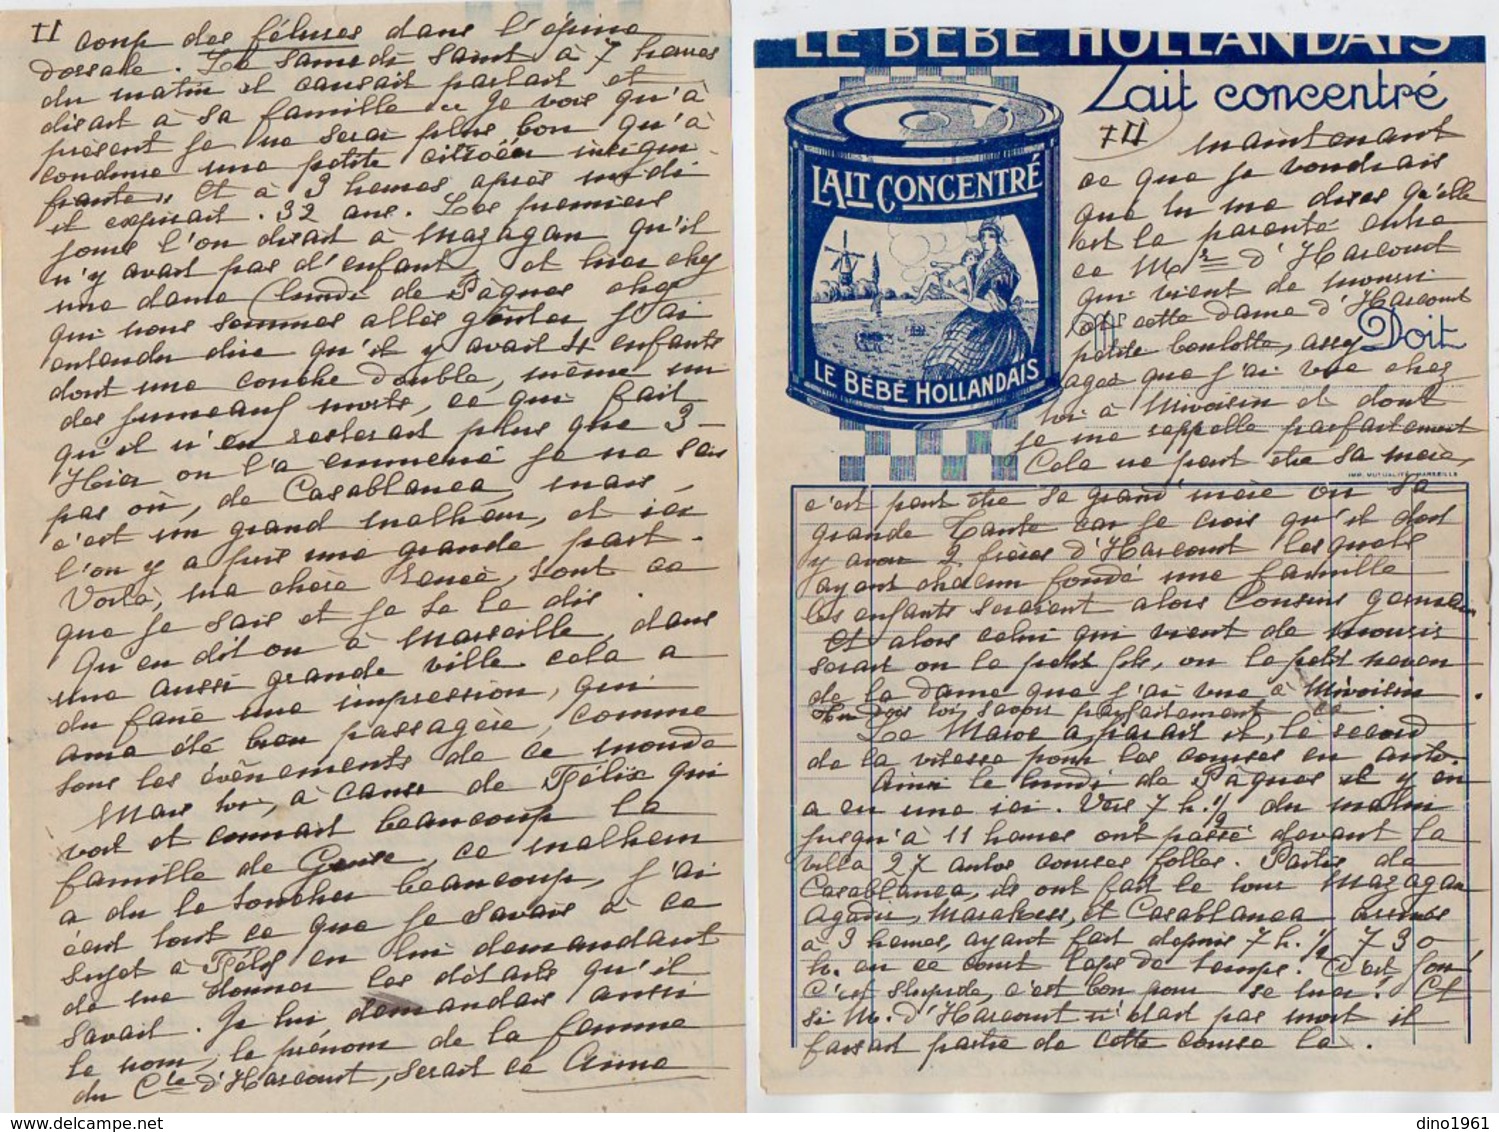 II coup des félures dans l'épine
dorsale. Le samedi saint à 7 heures
du matin il causait parlait et
disait à sa famille "Je vois qu'à
présent je ne serai plus bon qu'à
conduire une petite citroën insigni-
fiante" Et à 3 heures après midi
il expirait. 32 ans. Les premiers
jours l'on disait à Mazagan qu'il
n'y avait pas d'enfant, et hier chez
une dame (lundi de Pâques chez
qui nous sommes allés goûter j'ai
entendu dire qu'il y avait 4 enfants
dont une couche double, même un
des jumeaux morts, ce qui fait
qu'il n'en resterait plus que 3 -
Hier on l'a emmené je ne sais
pas où, de Casablanca, mais,
c'est un grand malheur, et ici
l'on y a pris une grande part.
Voilà, ma chère Renée, tout ce
que je sais et je te le dis.
Qu'en dit on à Marseille, dans
une aussi grande ville cela a
du faire une impression, qui
aura été bien passagère, comme
tous les évènements de ce monde
Mais toi, à cause de Félix qui
voit et connait beaucoup la
famille de Guise, ce malheur
a du te toucher beaucoup, j'ai
écrit tout ce que je savais à ce
sujet à Félix en lui demandant
de me donner les détails qu'il
savait. Je lui demandais aussi
le nom, le prénom de la femme
du Cte d'Harcourt, serait ce Anne
LE BÉBÉ HOLLANDAIS
Lait concentré
LAIT CONCENTRÉ
LE BÉBÉ HOLLANDAIS
III maintenant
ce que je voudrais
que tu me dises qu'elle
est la parenté entre
ce Mr d'Harcourt
qui vient de mourir
Mr Doit
et cette dame d'Harcourt
petite boulotte, assez
agée que j'ai vue chez
toi à Mivoisin et dont
je me rappelle parfaitement
Cela ne peut être sa mère,
IMP. MUTUALITÉ MARSEILLE
c'est peut être sa grand'mère ou sa
grande Tante car je crois qu'il doit
y avoir 2 frères d'Harcourt lesquels
ayant chacun fondé une famille
les enfants seraient alors Cousins germains
Et alors celui qui vient de mourir
serait ou le petit fils, ou le petit neveu
de la dame que j'ai vue à Mivoisin.
Tu dois toi, savoir parfaitement ça.
Le Maroc a, parait il, le record
de la vitesse pour les courses en auto.
Ainsi le lundi de Pâques il y en
a eu une ici. Vers 7 h. 1/2 du matin
jusqu'à 11 heures ont passé devant la
villa 27 autos courses folles. Parties de
Casablanca, ils ont fait le tour Mazagan
Agadir, Marakess, et Casablanca arrivés
à 3 heures, ayant fait depuis 7 h. 1/2 730
k. en ce court laps de temps. C'est fou!
C'est stupide, c'est bon pour se tuer! Et
si M. d'Harcourt n'était pas mort il
faisait partie de cette course la.
dino1961